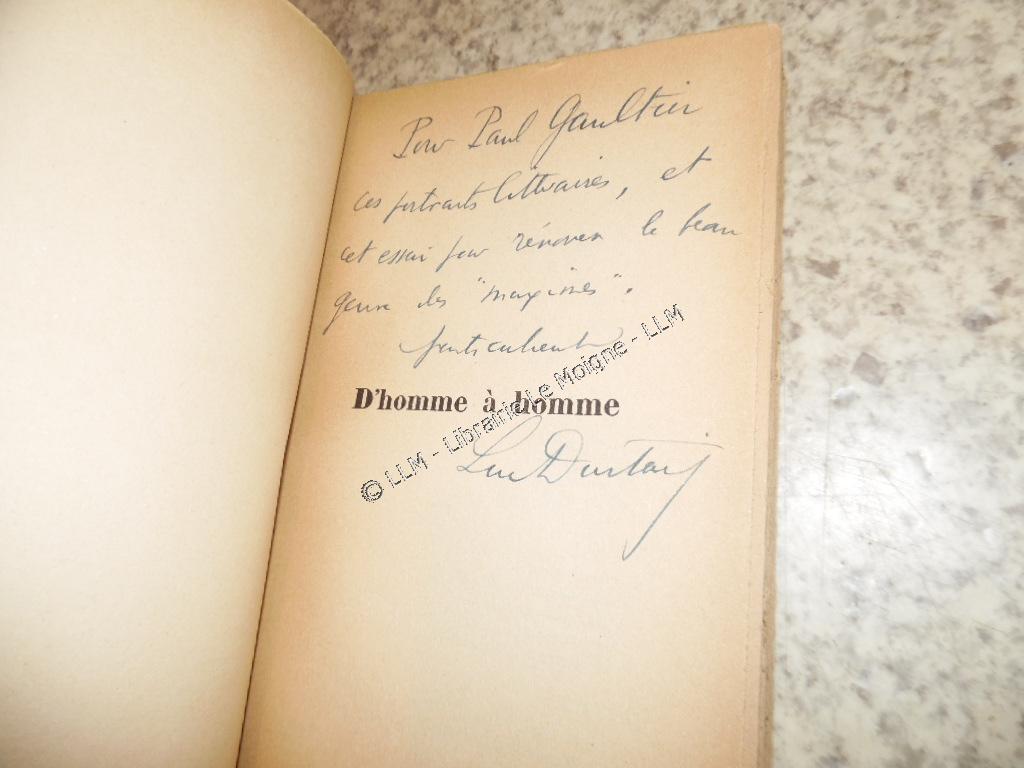 Pour Paul Gaultier
ces portraits littéraires, et
cet essai pour rénover le beau
genre des "maximes".
D'homme à homme
© LLM - Librairie Le Moigne - LLM
Luc Durtain